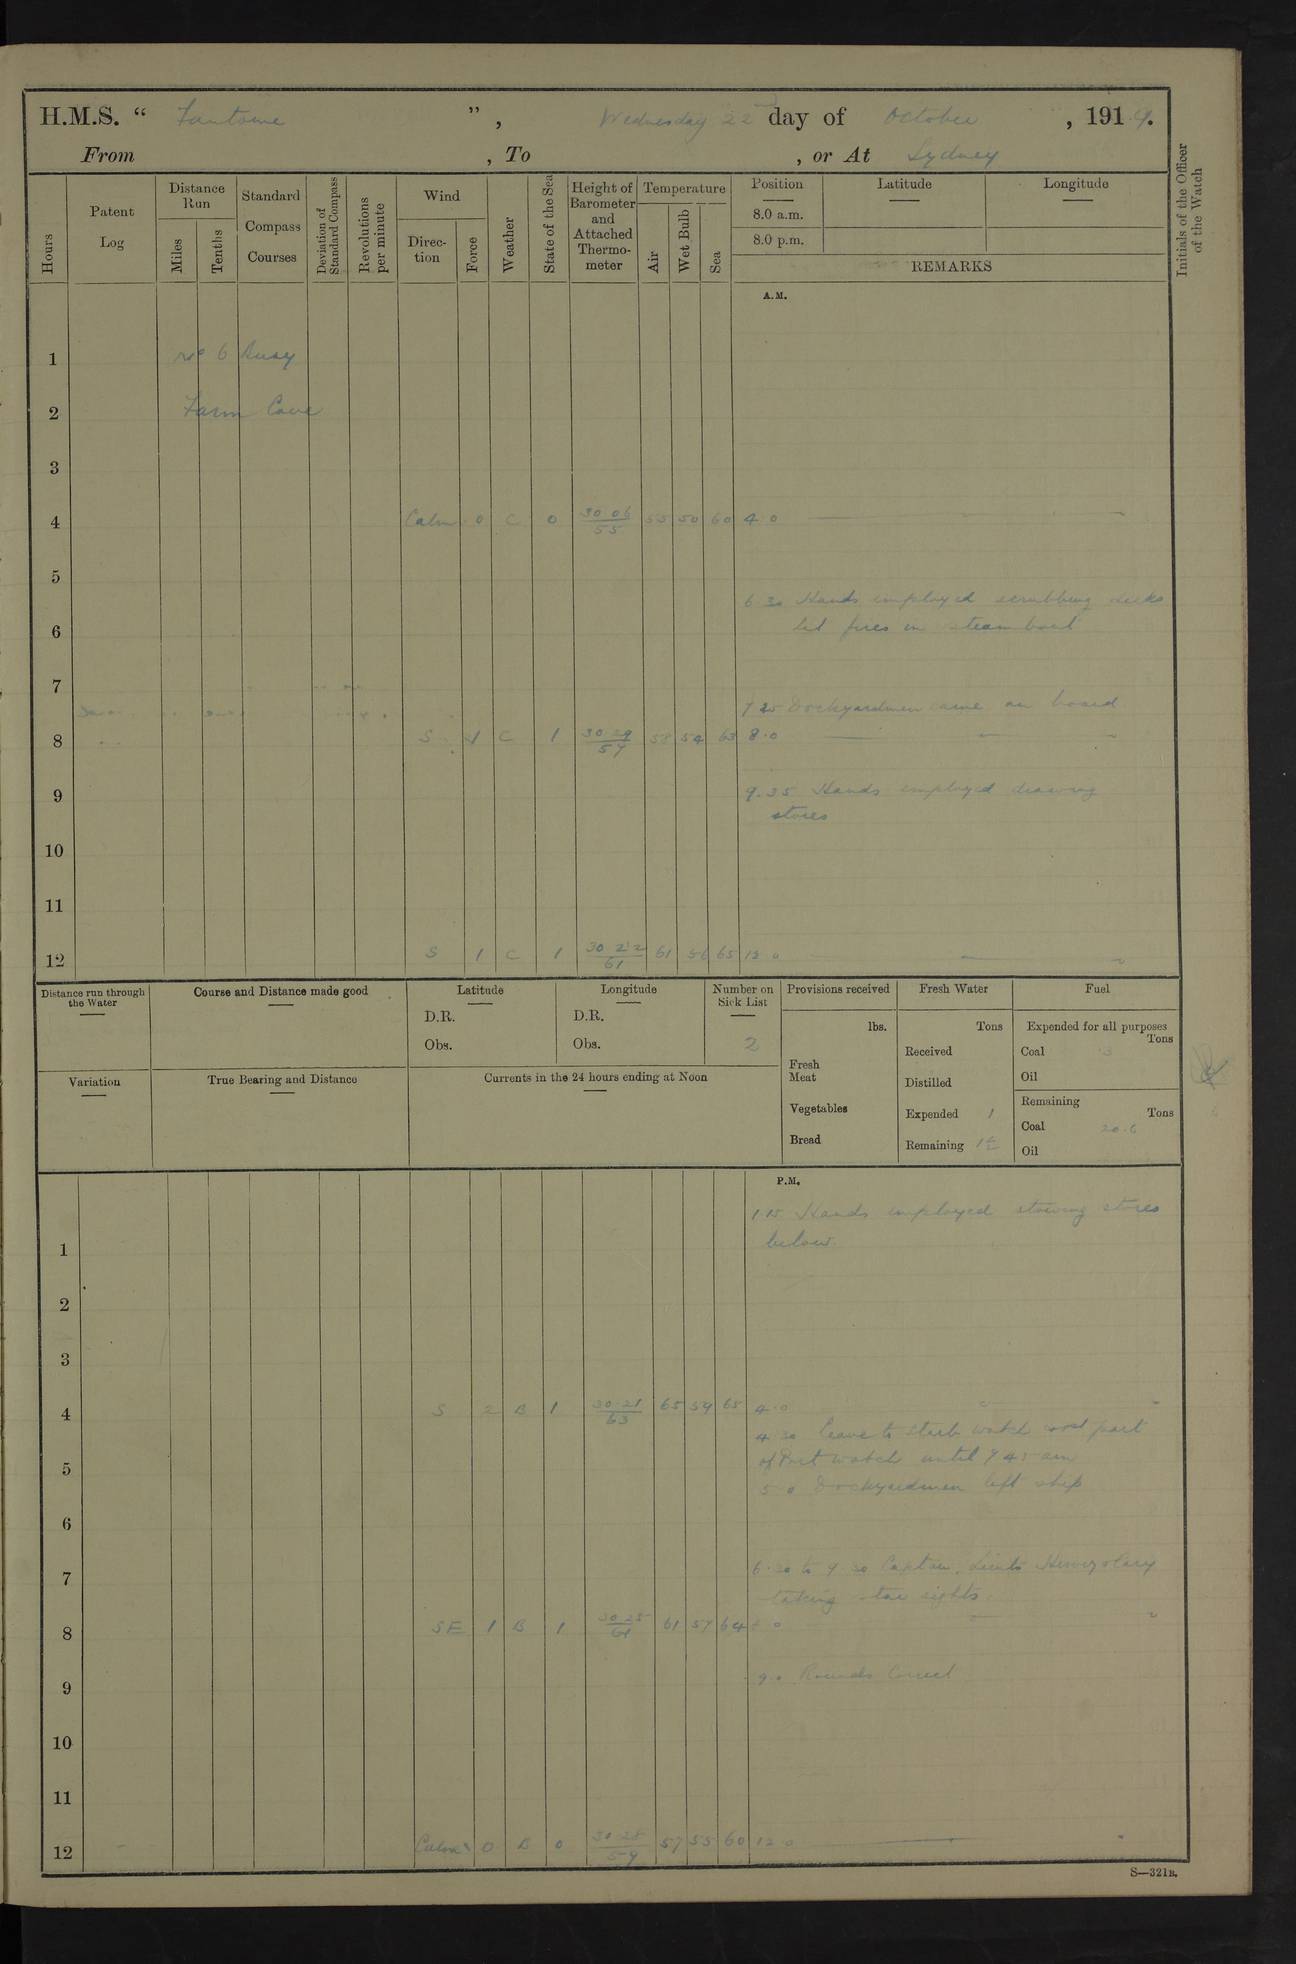 H.M.S. " Fantome ", Wednesday 22nd day of October, 1919.
From , To , or At Sydney
Hours
Patent Log
Distance Run
Miles
Tenths
Standard Compass Courses
Deviation of Standard Compass
Revolutions per minute
Wind
Direction
Force
Weather
State of the Sea
Height of Barometer and Attached Thermometer
Temperature
Air
Wet Bulb
Sea
Position
8.0 a.m.
8.0 p.m.
Latitude
Longitude
REMARKS
Initials of the Officer of the Watch
A.M.
1 No 6 Buoy
2 Farm Cove
3
4 Calm 0 C 0 30.06 55 55 50 60 4.0
5
6.30 Hands employed scrubbing decks
6 lit fires in steam boat
7
7.25 Dockyardmen came on board
8 S 1 C 1 30.29 57 58 54 63 8.0
9 9.35 Hands employed drawing
stores
10
11
12 S 1 C 1 30.22 61 61 56 65 12.0
Distance run through the Water
Course and Distance made good
Latitude
D.R.
Obs.
Longitude
D.R.
Obs.
Number on Sick List
2
Provisions received
lbs.
Fresh Meat
Vegetables
Bread
Fresh Water
Tons
Received
Distilled
Expended 1
Remaining
Fuel
Expended for all purposes
Tons
Coal .3
Oil
Remaining
Tons
Coal 20.6
Oil
Variation
True Bearing and Distance
Currents in the 24 hours ending at Noon
P.M.
1.15 Hands employed stowing stores
1 below.
2
3
4 S 2 B 1 30.21 63 65 59 65 4.0
4.30 leave to Starb watch and part
of Port watch until 7.45 am
5
5.0 Dockyardmen left ship
6
6.30 to 7.30 Captain, Lieuts
7 taking star sights.
8 SE 1 B 1 30.25 61 61 57 64 8.0
9 9.0 Rounds Correct
10
11
12 Calm 0 B 0 30.25 59 57 55 60 12.0
S—321B.